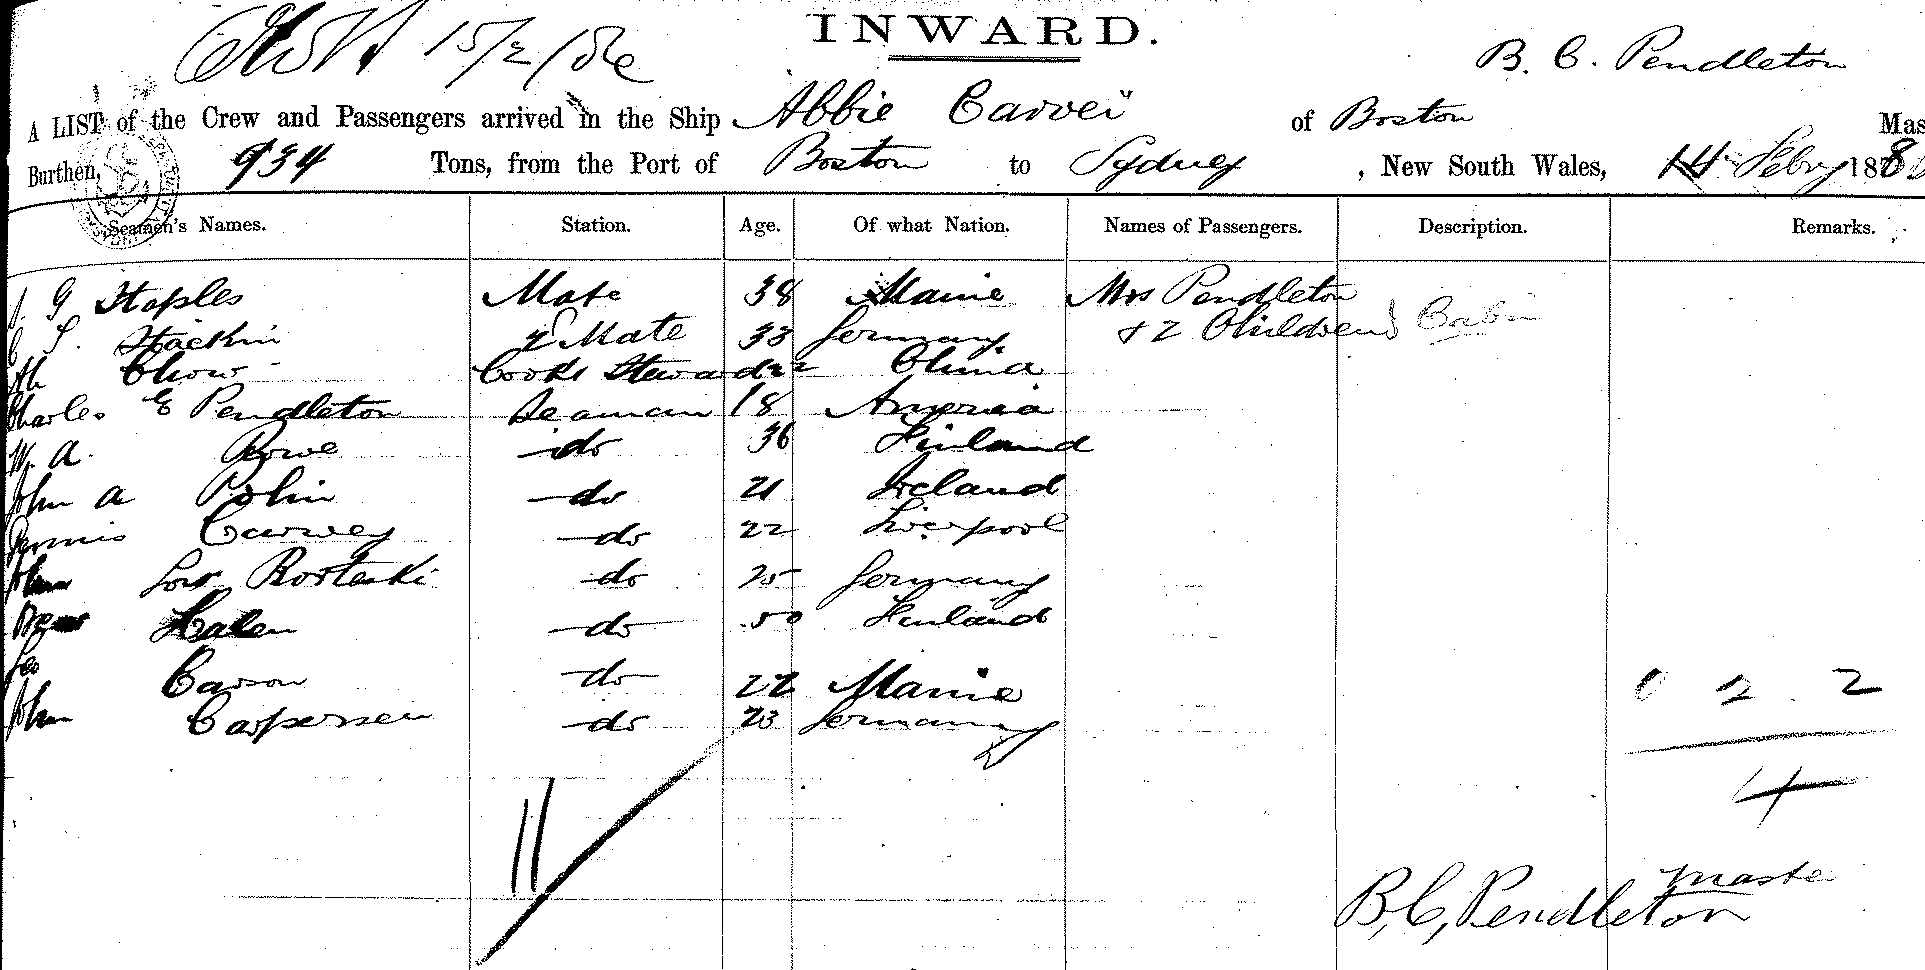 INWARD.
15/2/
B. C. Pendleton
A LIST of the Crew and Passengers arrived in the Ship Abbie Carver of Boston Mas
Burthen, 934 Tons, from the Port of Boston to Sydney, New South Wales, 14 Febry 188
Seamen's Names. Station. Age. Of what Nation. Names of Passengers. Description. Remarks.
J. G Staples Mate 38 Maine Mrs Pendleton
S. 2 Mate 33 Germany & 2 Children Cabin
Ah Chow Cook & Steward 22 China
Charles E Pendleton Seaman 18 America
W. A. Rowe do 36 Finland
John A Polin do 21 Ireland
Dennis Carvey do 22 Liverpool
John do 25 Germany
Halen do 50 Finland
Geo Carson do 22 Maine
John Carpersen do 23 Germany
0 2 2
4
11
Master
B, C, Pendleton